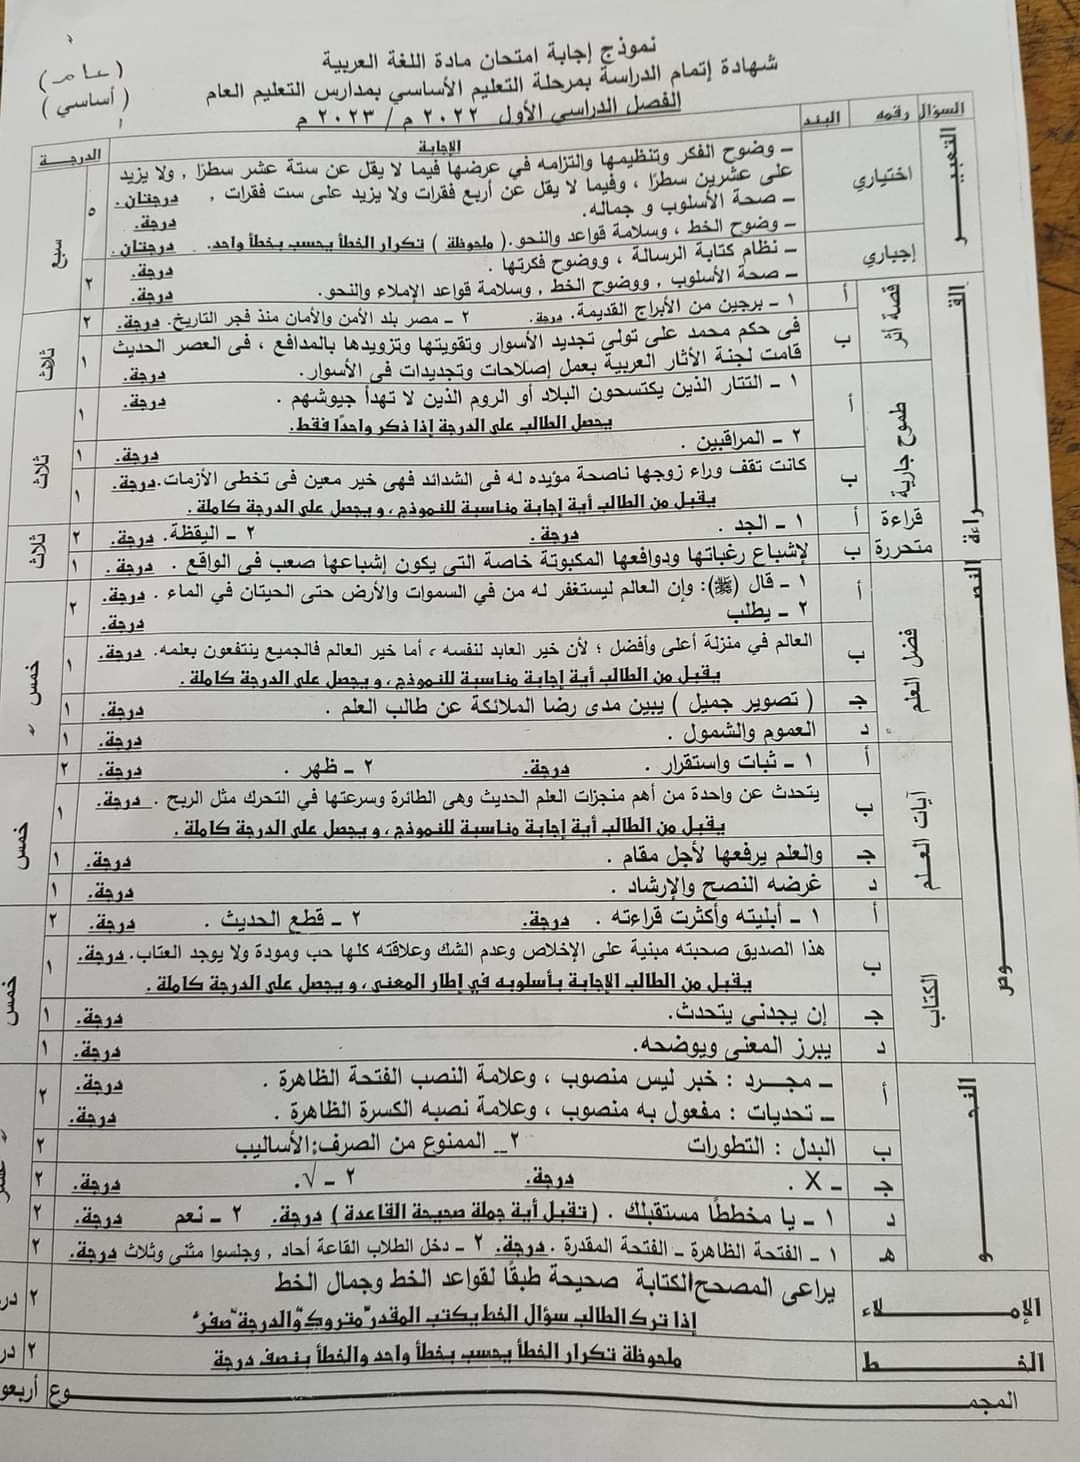 (عام)
(أساسي)
نموذج إجابة امتحان مادة اللغة العربية
شهادة إتمام الدراسة بمرحلة التعليم الأساسي بمدارس التعليم العام
الفصل الدراسي الأول ٢٠٢٢ م / ٢٠٢٣ م
السؤال رقمه البند الإجابة الدرجــة
التعبيـــر اختياري – وضوح الفكر وتنظيمها والتزامه في عرضها فيما لا يقل عن ستة عشر سطرًا , ولا يزيد
على عشرين سطرًا ، وفيما لا يقل عن أربع فقرات ولا يزيد على ست فقرات , درجتان. ٥ سبع
– صحة الأسلوب و جماله. درجة.
– وضوح الخط ، وسلامة قواعد والنحو.( ملحوظة ) تكرار الخطأ يحسب بخطأ واحد. درجتان.
إجباري – نظام كتابة الرسالة ، ووضوح فكرتها . درجة. ٢
– صحة الأسلوب , ووضوح الخط , وسلامة قواعد الإملاء والنحو. درجة.
القــراءة قصة أثر أ ١ – برجين من الأبراج القديمة. درجة. ٢ – مصر بلد الأمن والأمان منذ فجر التاريخ. درجة. ٢ ثلاث
ب فى حكم محمد على تولي تجديد الأسوار وتقويتها وتزويدها بالمدافع ، فى العصر الحديث ١
قامت لجنة الأثار العربية بعمل إصلاحات وتجديدات فى الأسوار. درجة.
طموح جارية أ ١ – التتار الذين يكتسحون البلاد أو الروم الذين لا تهدأ جيوشهم . درجة. ١ ثلاث
يحصل الطالب على الدرجة إذا ذكر واحدًا فقط.
٢ – المراقبين . درجة. ١
ب كانت تقف وراء زوجها ناصحة مؤيده له فى الشدائد فهى خير معين فى تخطى الأزمات.درجة. ١
يقبل من الطالب أية إجابة مناسبة للنموذج ، و يحصل على الدرجة كاملة .
قراءة متحررة أ ١ – الجد . درجة. ٢ – اليقظة. درجة. ٢ ثلاث
ب لإشباع رغباتها ودوافعها المكبوتة خاصة التى يكون إشباعها صعب فى الواقع . درجة. ١
النصــوص فضل العلم أ ١ – قال (ﷺ): وإن العالم ليستغفر له من في السموات والأرض حتى الحيتان في الماء . درجة. ٢ خمس
٢ – يطلب درجة.
ب العالم في منزلة أعلى وأفضل ؛ لأن خير العابد لنفسه ، أما خير العالم فالجميع ينتفعون بعلمه. درجة. ١
يقبل من الطالب أية إجابة مناسبة للنموذج، و يحصل على الدرجة كاملة .
جـ ( تصوير جميل ) يبين مدى رضا الملائكة عن طالب العلم . درجة. ١
د العموم والشمول . درجة. ١
آيات العلم أ ١ – ثبات واستقرار . درجة. ٢ – ظهر . درجة. ٢ خمس
ب يتحدث عن واحدة من أهم منجزات العلم الحديث وهى الطائرة وسرعتها في التحرك مثل الريح . درجة. ١
يقبل من الطالب أية إجابة مناسبة للنموذج ، و يحصل على الدرجة كاملة .
جـ والعلم يرفعها لأجل مقام . درجة. ١
د غرضه النصح والإرشاد . درجة. ١
الكتاب أ ١ – أبليته وأكثرت قراءته . درجة. ٢ – قطع الحديث . درجة. ٢ خمس
ب هذا الصديق صحبته مبنية على الإخلاص وعدم الشك وعلاقته كلها حب ومودة ولا يوجد العتاب. درجة. ١
يقبل من الطالب الإجابة بأسلوبه في إطار المعنى ، و يحصل على الدرجة كاملة .
جـ إن يجدني يتحدث. درجة. ١
د يبرز المعنى ويوضحه. درجة. ١
النحــو أ – مجــرد : خبر ليس منصوب ، وعلامة النصب الفتحة الظاهرة . درجة. ٢
– تحديات : مفعول به منصوب ، وعلامة نصبه الكسرة الظاهرة . درجة.
ب البدل : التطورات ٢_ الممنوع من الصرف:الأساليب ٢
جـ – X . درجة. ٢ – √. درجة. ٢
د ١ – يا مخططًا مستقبلك . (تقبل أية جملة صحيحة القاعدة) درجة. ٢ – نعم درجة. ٢
هـ ١ – الفتحة الظاهرة – الفتحة المقدرة . درجة. ٢ – دخل الطلاب القاعة أحاد , وجلسوا مثنى وثلاث درجة. ٢
الإمــلاء يراعى المصحح الكتابة صحيحة طبقًا لقواعد الخط وجمال الخط ٢
إذا ترك الطالب سؤال الخط يكتب المقدر"متروك" والدرجة"صفر"
الخــط ملحوظة تكرار الخطأ يحسب بخطأ واحد والخطأ بنصف درجة ٢
المجمــوع